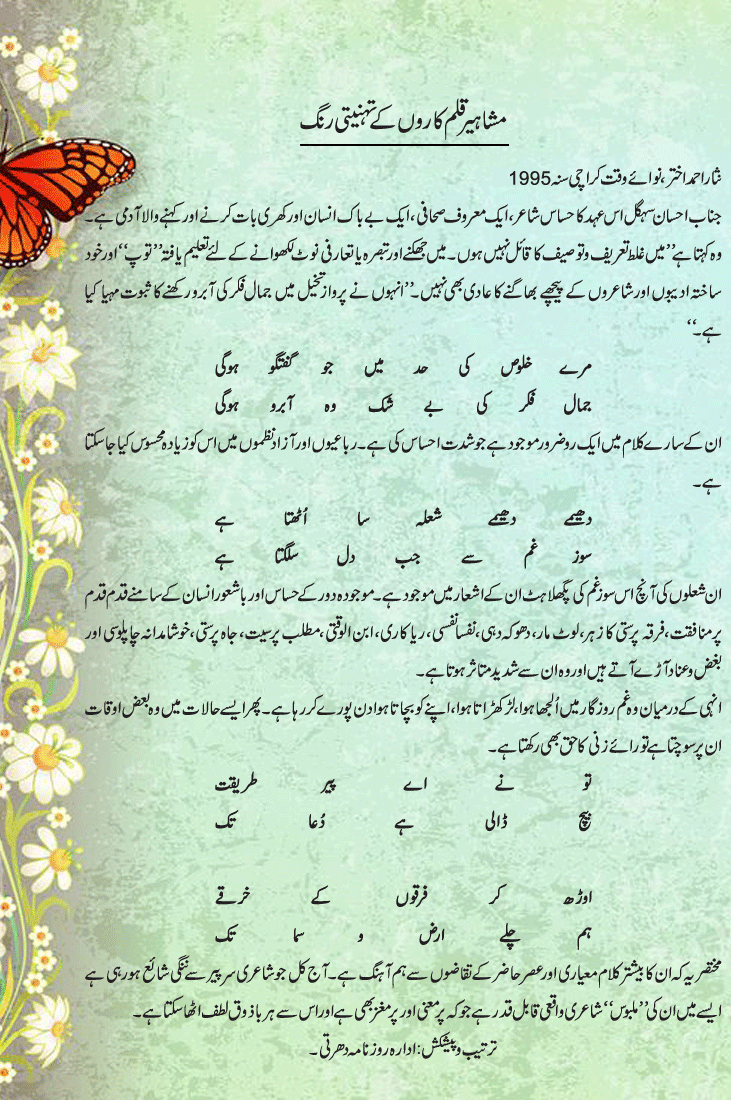 مشاہیر قلم کاروں کے تہنیتی رنگ
نثار احمد اختر، نوائے وقت کراچی سنہ 1995
جناب احسان سہگل اس عہد کا حساس شاعر، ایک معروف صحافی، ایک بے باک انسان اور کھری بات کرنے اور کہنے والا آدمی ہے۔
وہ کہتا ہے ’’میں غلط تعریف و توصیف کا قائل نہیں ہوں۔ میں جھکنے اور تبصرہ یا تعارفی نوٹ لکھوانے کے لئے تعلیم یافتہ ’’توپ‘‘ اور خود
ساختہ ادیبوں اور شاعروں کے پیچھے بھاگنے کا عادی بھی نہیں۔ ’’انہوں نے پرواز تخیل میں جمال فکر کی آبرو رکھنے کا ثبوت مہیا کیا
ہے۔‘‘
مرے خلوص کی حد میں جو گفتگو ہوگی
جمال فکر کی بے شک وہ آبرو ہوگی
ان کے سارے کلام میں ایک رو ضرور موجود ہے جو شدت احساس کی ہے۔ رباعیوں اور آزاد نظموں میں اس کو زیادہ محسوس کیا جاسکتا
ہے۔
دھیمے دھیمے شعلہ سا اُٹھتا ہے
سوز غم سے جب دل سلگتا ہے
ان شعلوں کی آنچ اس سوز غم کی پگھلاہٹ ان کے اشعار میں موجود ہے۔ موجودہ دور کے حساس اور باشعور انسان کے سامنے قدم قدم
پر منافقت، فرقہ پرستی کا زہر، لوٹ مار، دھوکہ دہی، نفسا نفسی، ریا کاری، ابن الوقتی، مطلب پرسیت، جاہ پرستی، خوشامدانہ چاپلوسی اور
بغض و عناد آڑے آتے ہیں اور وہ ان سے شدید متاثر ہوتا ہے۔
انہی کے درمیان وہ غم روزگار میں اُلجھا ہوا، لڑکھڑاتا ہوا، اپنے کو بچاتا ہوا دن پورے کر رہا ہے۔ پھر ایسے حالات میں وہ بعض اوقات
ان پر سوچتا ہے تو رائے زنی کا حق بھی رکھتا ہے۔
تو نے اے پیر طریقت
بیچ ڈالی ہے دُعا تک
اوڑھ کر فرقوں کے خرقے
ہم چلے ارض و سما تک
مختصر یہ کہ ان کا بیشتر کلام معیاری اور عصر حاضر کے تقاضوں سے ہم آہنگ ہے۔ آج کل جو شاعری سر پیر سے ننگی شائع ہو رہی ہے
ایسے میں ان کی ’’ملبوس‘‘ شاعری واقعی قابل قدر ہے جو کہ پر معنی اور پر مغز بھی ہے اور اس سے ہر باذوق لطف اٹھا سکتا ہے۔
ترتیب و پیشکش: ادارہ روزنامہ دھرتی۔